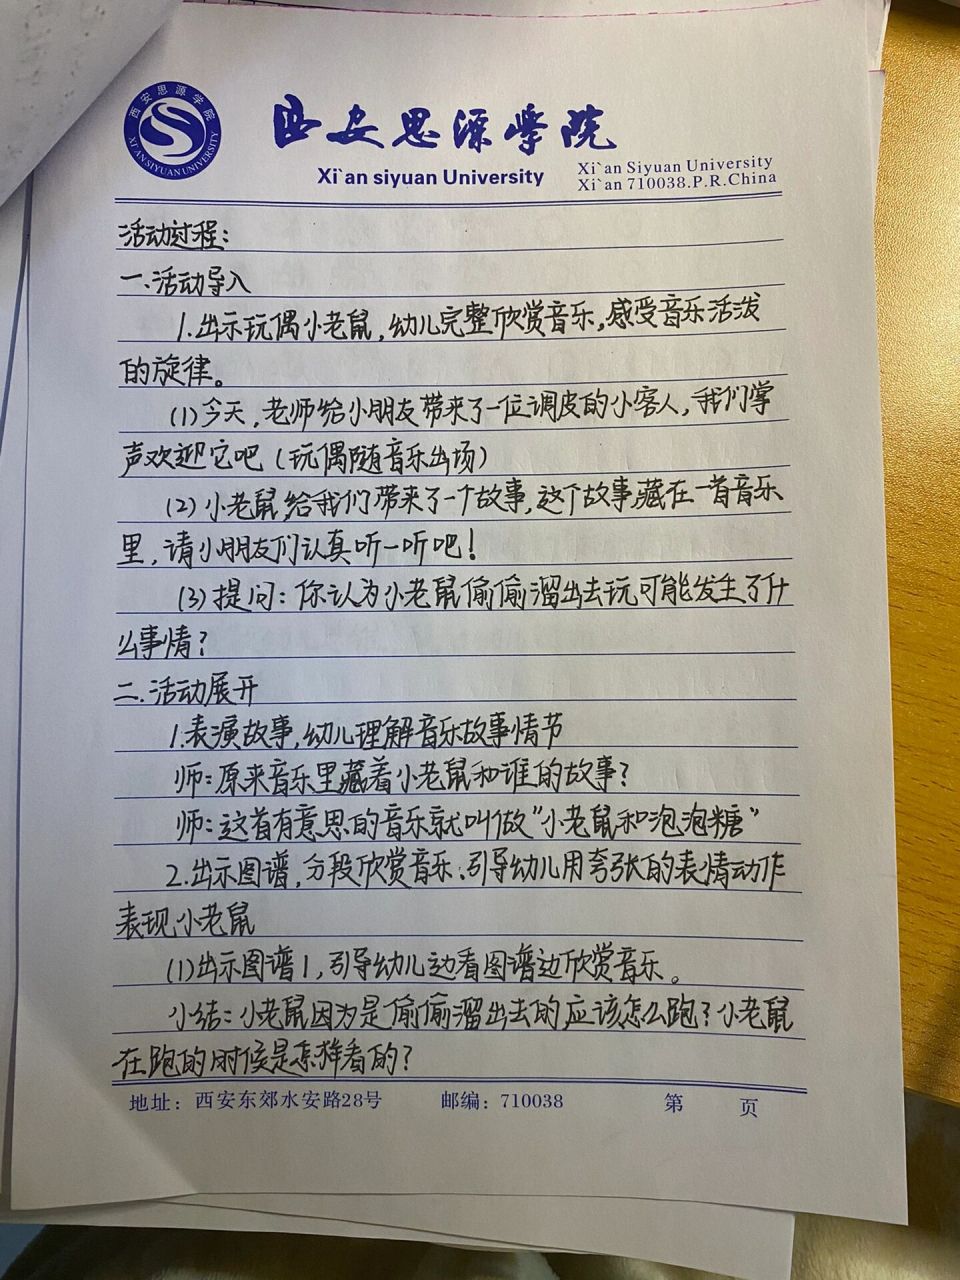 西安思源学院
XI'AN SIYUAN UNIVERSITY
西安思源学院
Xi`an siyuan University
Xi`an Siyuan University
Xi`an 710038.P.R.China
活动过程:
一.活动导入
1.出示玩偶小老鼠,幼儿完整欣赏音乐,感受音乐活泼
的旋律。
(1)今天,老师给小朋友带来了一位调皮的小客人,我们掌
声欢迎它吧(玩偶随音乐出场)
(2)小老鼠给我们带来了一个故事,这个故事藏在一首音乐
里,请小朋友们认真听一听吧!
(3)提问:你认为小老鼠偷偷溜出去玩可能发生了什
么事情?
二.活动展开
1.表演故事,幼儿理解音乐故事情节
师:原来音乐里藏着小老鼠和谁的故事?
师:这首有意思的音乐就叫做"小老鼠和泡泡糖"
2.出示图谱,分段欣赏音乐,引导幼儿用夸张的表情动作
表现小老鼠
(1)出示图谱1,引导幼儿边看图谱边欣赏音乐。
小结:小老鼠因为是偷偷溜出去的应该怎么跑?小老鼠
在跑的时候是怎样看的?
地址:西安东郊水安路28号 邮编:710038 第 页